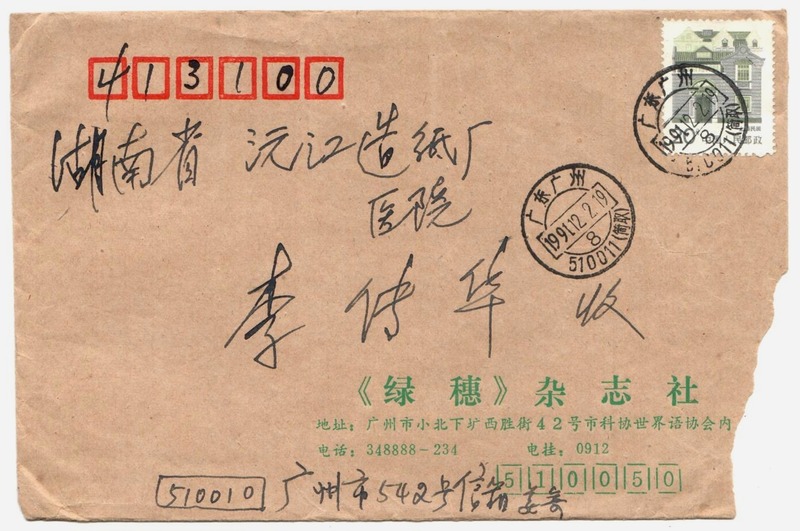 413100
湖南省 沅江造纸厂
医院
李传华 收
广东广州
1991.12.2.19
8
510011(筒取)
广东广州
1991.12.2.19
8
510011(筒取)
《绿穗》杂志社
地址：广州市小北下圹西胜街42号市科协世界语协会内
电话：348888-234 电挂：0912
510050
510010 广州市542号信箱